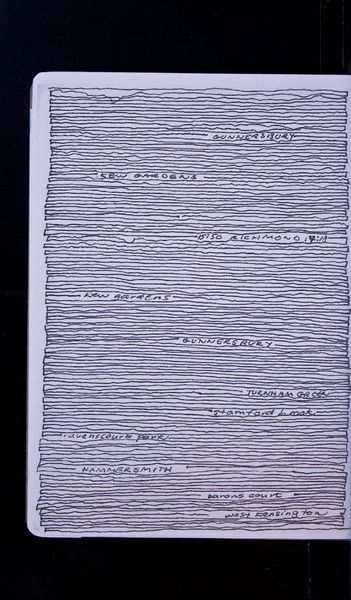 GUNNERSBURY
KEW GARDENS
RICHMOND 17:13
KEW GARDENS
GUNNERSBURY
TURNHAM GREEN
stamford brook
ravenscourt park
HAMMERSMITH
barons court
west kensington